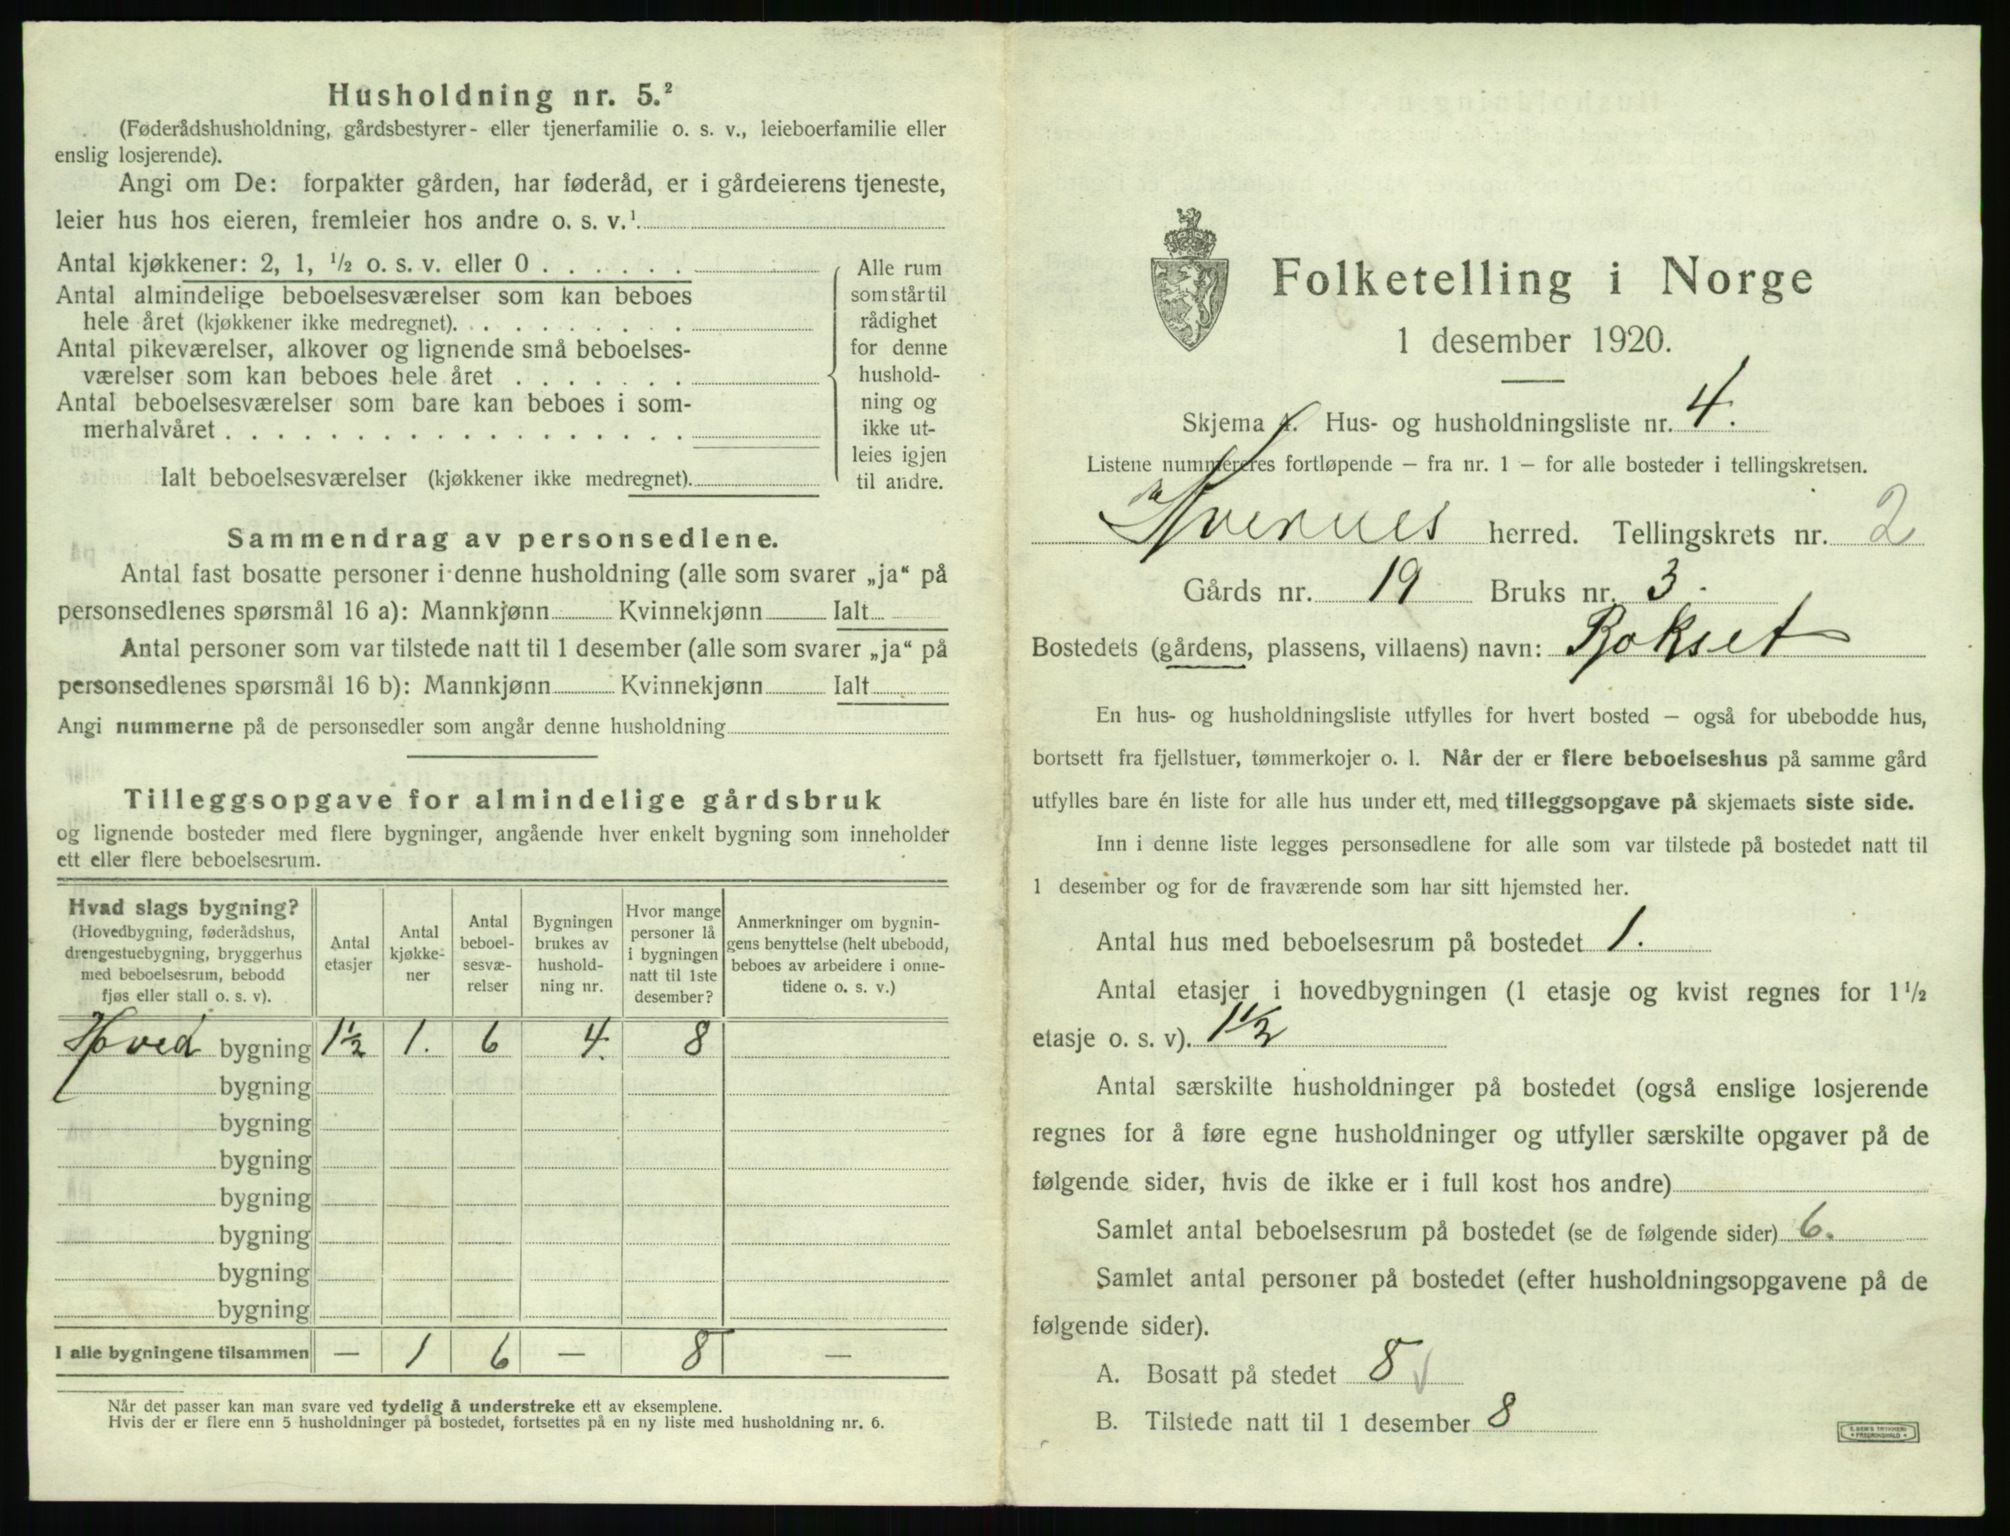 Husholdning nr. 5.²
(Føderådshusholdning, gårdsbestyrer- eller tjenerfamilie o. s. v., leieboerfamilie eller
enslig losjerende).
Angi om De: forpakter gården, har føderåd, er i gårdeierens tjeneste,
leier hus hos eieren, fremleier hos andre o. s. v.¹
Antal kjøkkener: 2, 1, ½ o. s. v. eller 0 . . . . . .
Antal almindelige beboelsesværelser som kan beboes
hele året (kjøkkener ikke medregnet). . . . . . . . .
Antal pikeværelser, alkover og lignende små beboelses-
værelser som kan beboes hele året . . . . . . .
Antal beboelsesværelser som bare kan beboes i som-
merhalvåret . . . . . . . . . . . . . . . . . .
Ialt beboelsesværelser (kjøkkener ikke medregnet).
Alle rum
som står til
rådighet
for denne
hushold-
ning og
ikke ut-
leies igjen
til andre.
Sammendrag av personsedlene.
Antal fast bosatte personer i denne husholdning (alle som svarer „ja“ på
personsedlenes spørsmål 16 a): Mannkjønn Kvinnekjønn Ialt
Antal personer som var tilstede natt til 1 desember (alle som svarer „ja“ på
personsedlenes spørsmål 16 b): Mannkjønn Kvinnekjønn Ialt
Angi nummerne på de personsedler som angår denne husholdning
Tilleggsopgave for almindelige gårdsbruk
og lignende bosteder med flere bygninger, angående hver enkelt bygning som inneholder
ett eller flere beboelsesrum.
Hvad slags bygning?
(Hovedbygning, føderådshus,
drengestuebygning, bryggerhus
med beboelsesrum, bebodd
fjøs eller stall o. s. v).
Antal
etasjer
Antal
kjøkke-
ner
Antal
beboel-
sesvæ-
relser
Bygningen
brukes av
hushold-
ning nr.
Hvor mange
personer lå
i bygningen
natt til 1ste
desember?
Anmerkninger om bygnin-
gens benyttelse (helt ubebodd,
beboes av arbeidere i onne-
tidene o. s. v.)
Hoved bygning 1½ 1. 6 4. 8
bygning
bygning
bygning
bygning
bygning
bygning
bygning
I alle bygningene tilsammen — 1 6 — 8 —
Når det passer kan man svare ved tydelig å understreke ett av eksemplene.
Hvis der er flere enn 5 husholdninger på bostedet, fortsettes på en ny liste med husholdning nr. 6.
Folketelling i Norge
1 desember 1920.
Skjema 1. Hus- og husholdningsliste nr. 4.
Listene nummereres fortløpende – fra nr. 1 – for alle bosteder i tellingskretsen.
Kvernes herred. Tellingskrets nr. 2
Gårds nr. 19 Bruks nr. 3.
Bostedets (gårdens, plassens, villaens) navn: Rokset
En hus- og husholdningsliste utfylles for hvert bosted – også for ubebodde hus,
bortsett fra fjellstuer, tømmerkojer o. l. Når der er flere beboelseshus på samme gård
utfylles bare én liste for alle hus under ett, med tilleggsopgave på skjemaets siste side.
Inn i denne liste legges personsedlene for alle som var tilstede på bostedet natt til
1 desember og for de fraværende som har sitt hjemsted her.
Antal hus med beboelsesrum på bostedet 1.
Antal etasjer i hovedbygningen (1 etasje og kvist regnes for 1½
etasje o. s. v). 1½
Antal særskilte husholdninger på bostedet (også enslige losjerende
regnes for å føre egne husholdninger og utfyller særskilte opgaver på de
følgende sider, hvis de ikke er i full kost hos andre)
Samlet antal beboelsesrum på bostedet (se de følgende sider) 6.
Samlet antal personer på bostedet (efter husholdningsopgavene på de
følgende sider).
A. Bosatt på stedet 8
B. Tilstede natt til 1 desember 8